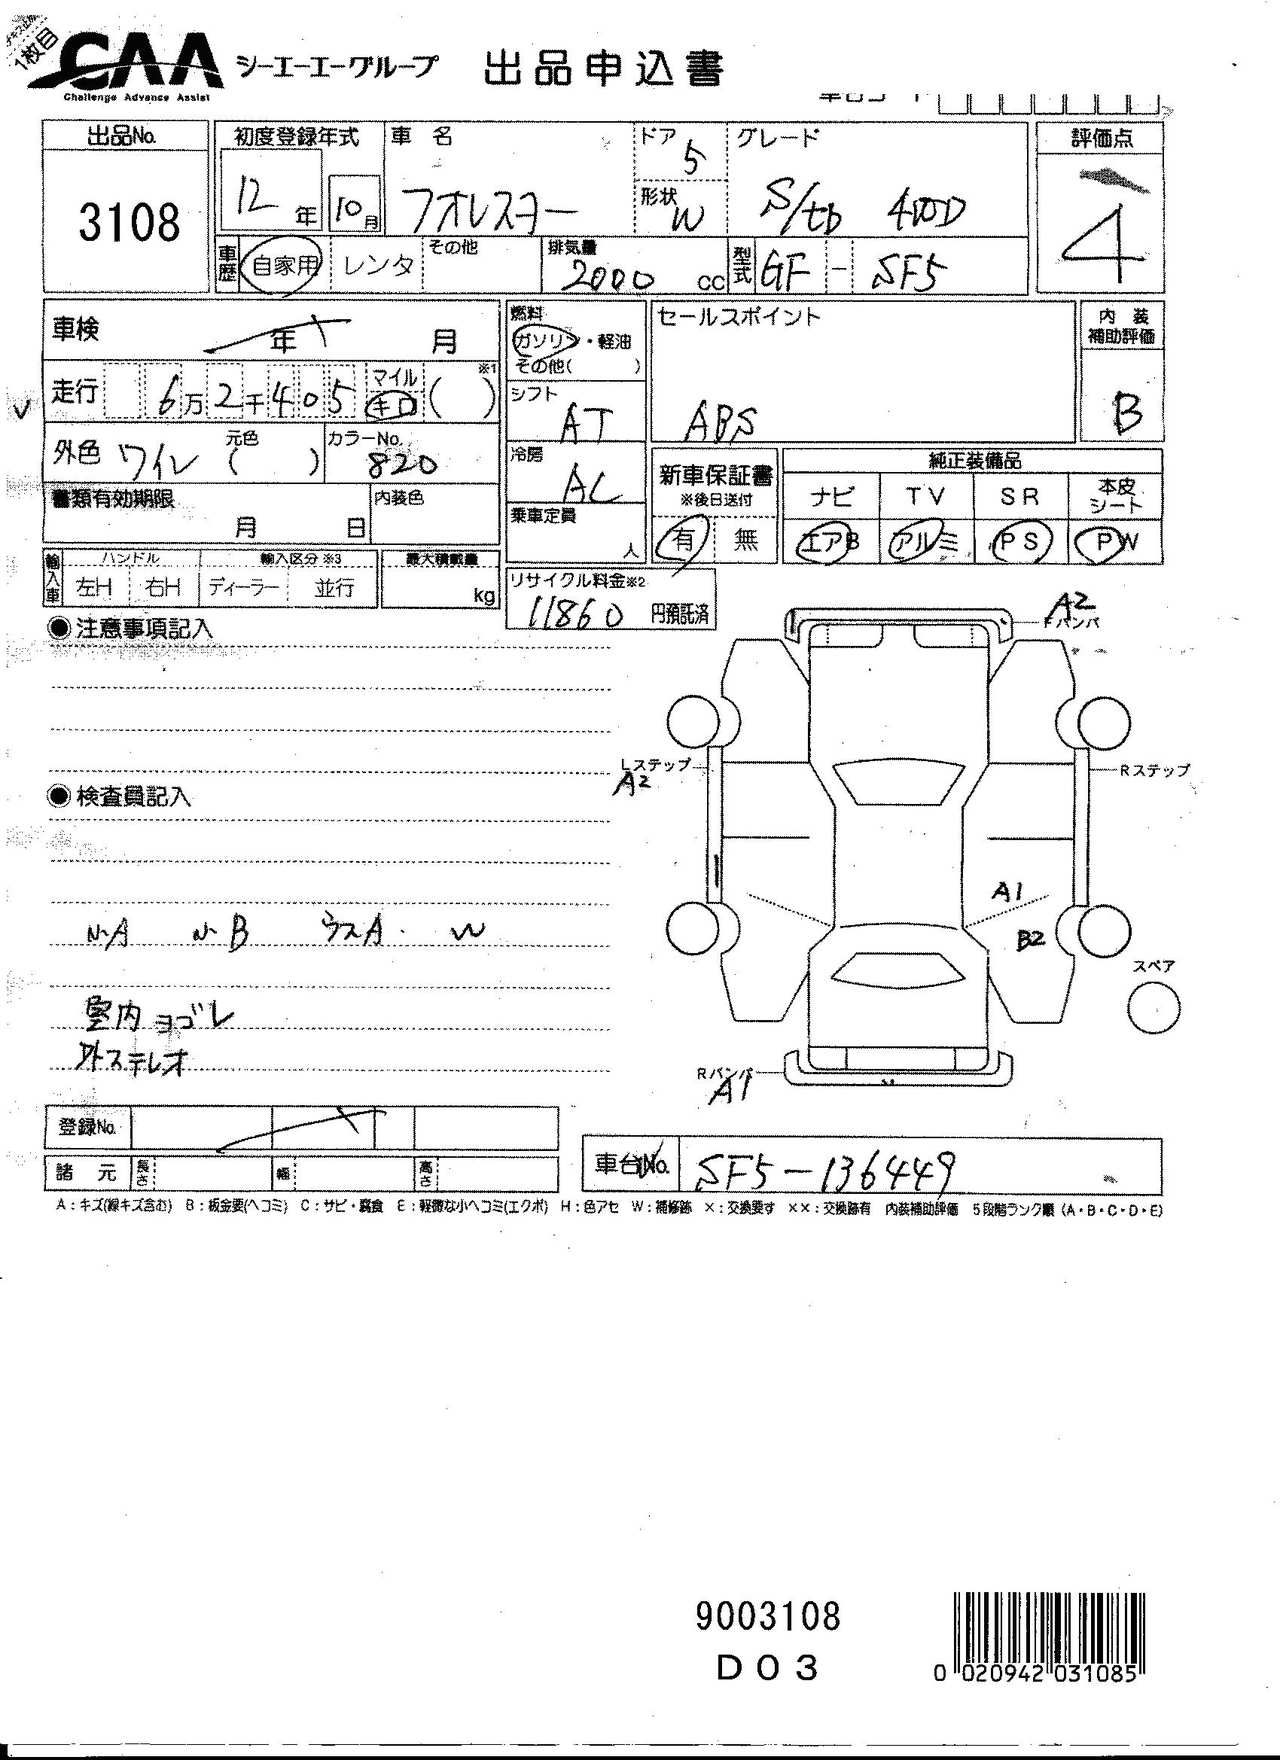 1枚目
CAA シーエーエーグループ 出品申込書
Challenge Advance Assist
出品No. 初度登録年式 車名 ドア 5 グレード 評価点
3108 12年 10月 フォレスター 形状 W S/tb 4WD 4
車歴 自家用 レンタ その他 排気量 2000 cc 型式 GF - SF5
車検 年 月 燃料 ガソリン・軽油 その他( ) セールスポイント 内装補助評価
走行 6万2千405 マイル キロ ( ) ※1 シフト AT ABS B
外色 ワイン 元色 ( ) カラーNo. 820 冷房 AC 新車保証書 ※後日送付 純正装備品
ナビ TV SR 本皮シート
書類有効期限 月 日 内装色 乗車定員 人 有 無 エアB アルミ PS PW
輸入車 ハンドル 左H 右H 輸入区分※3 ディーラー 並行 最大積載量 kg リサイクル料金※2 11860 円預託済
●注意事項記入
A2
Fバンパ
Lステップ
A2
Rステップ
●検査員記入
A1
小A 小B ウスA. W
B2
スペア
室内ヨゴレ
外ステレオ
Rバンパ
A1
登録No.
車台No. SF5-136449
諸元 長さ 幅 高さ
A：キズ(線キズ含む) B：板金要(ヘコミ) C：サビ・腐食 E：軽微な小ヘコミ(エクボ) H：色アセ W：補修跡 ×：交換要す ××：交換跡有 内装補助評価 5段階ランク順 (A・B・C・D・E)
9003108
D03
0 020942 031085